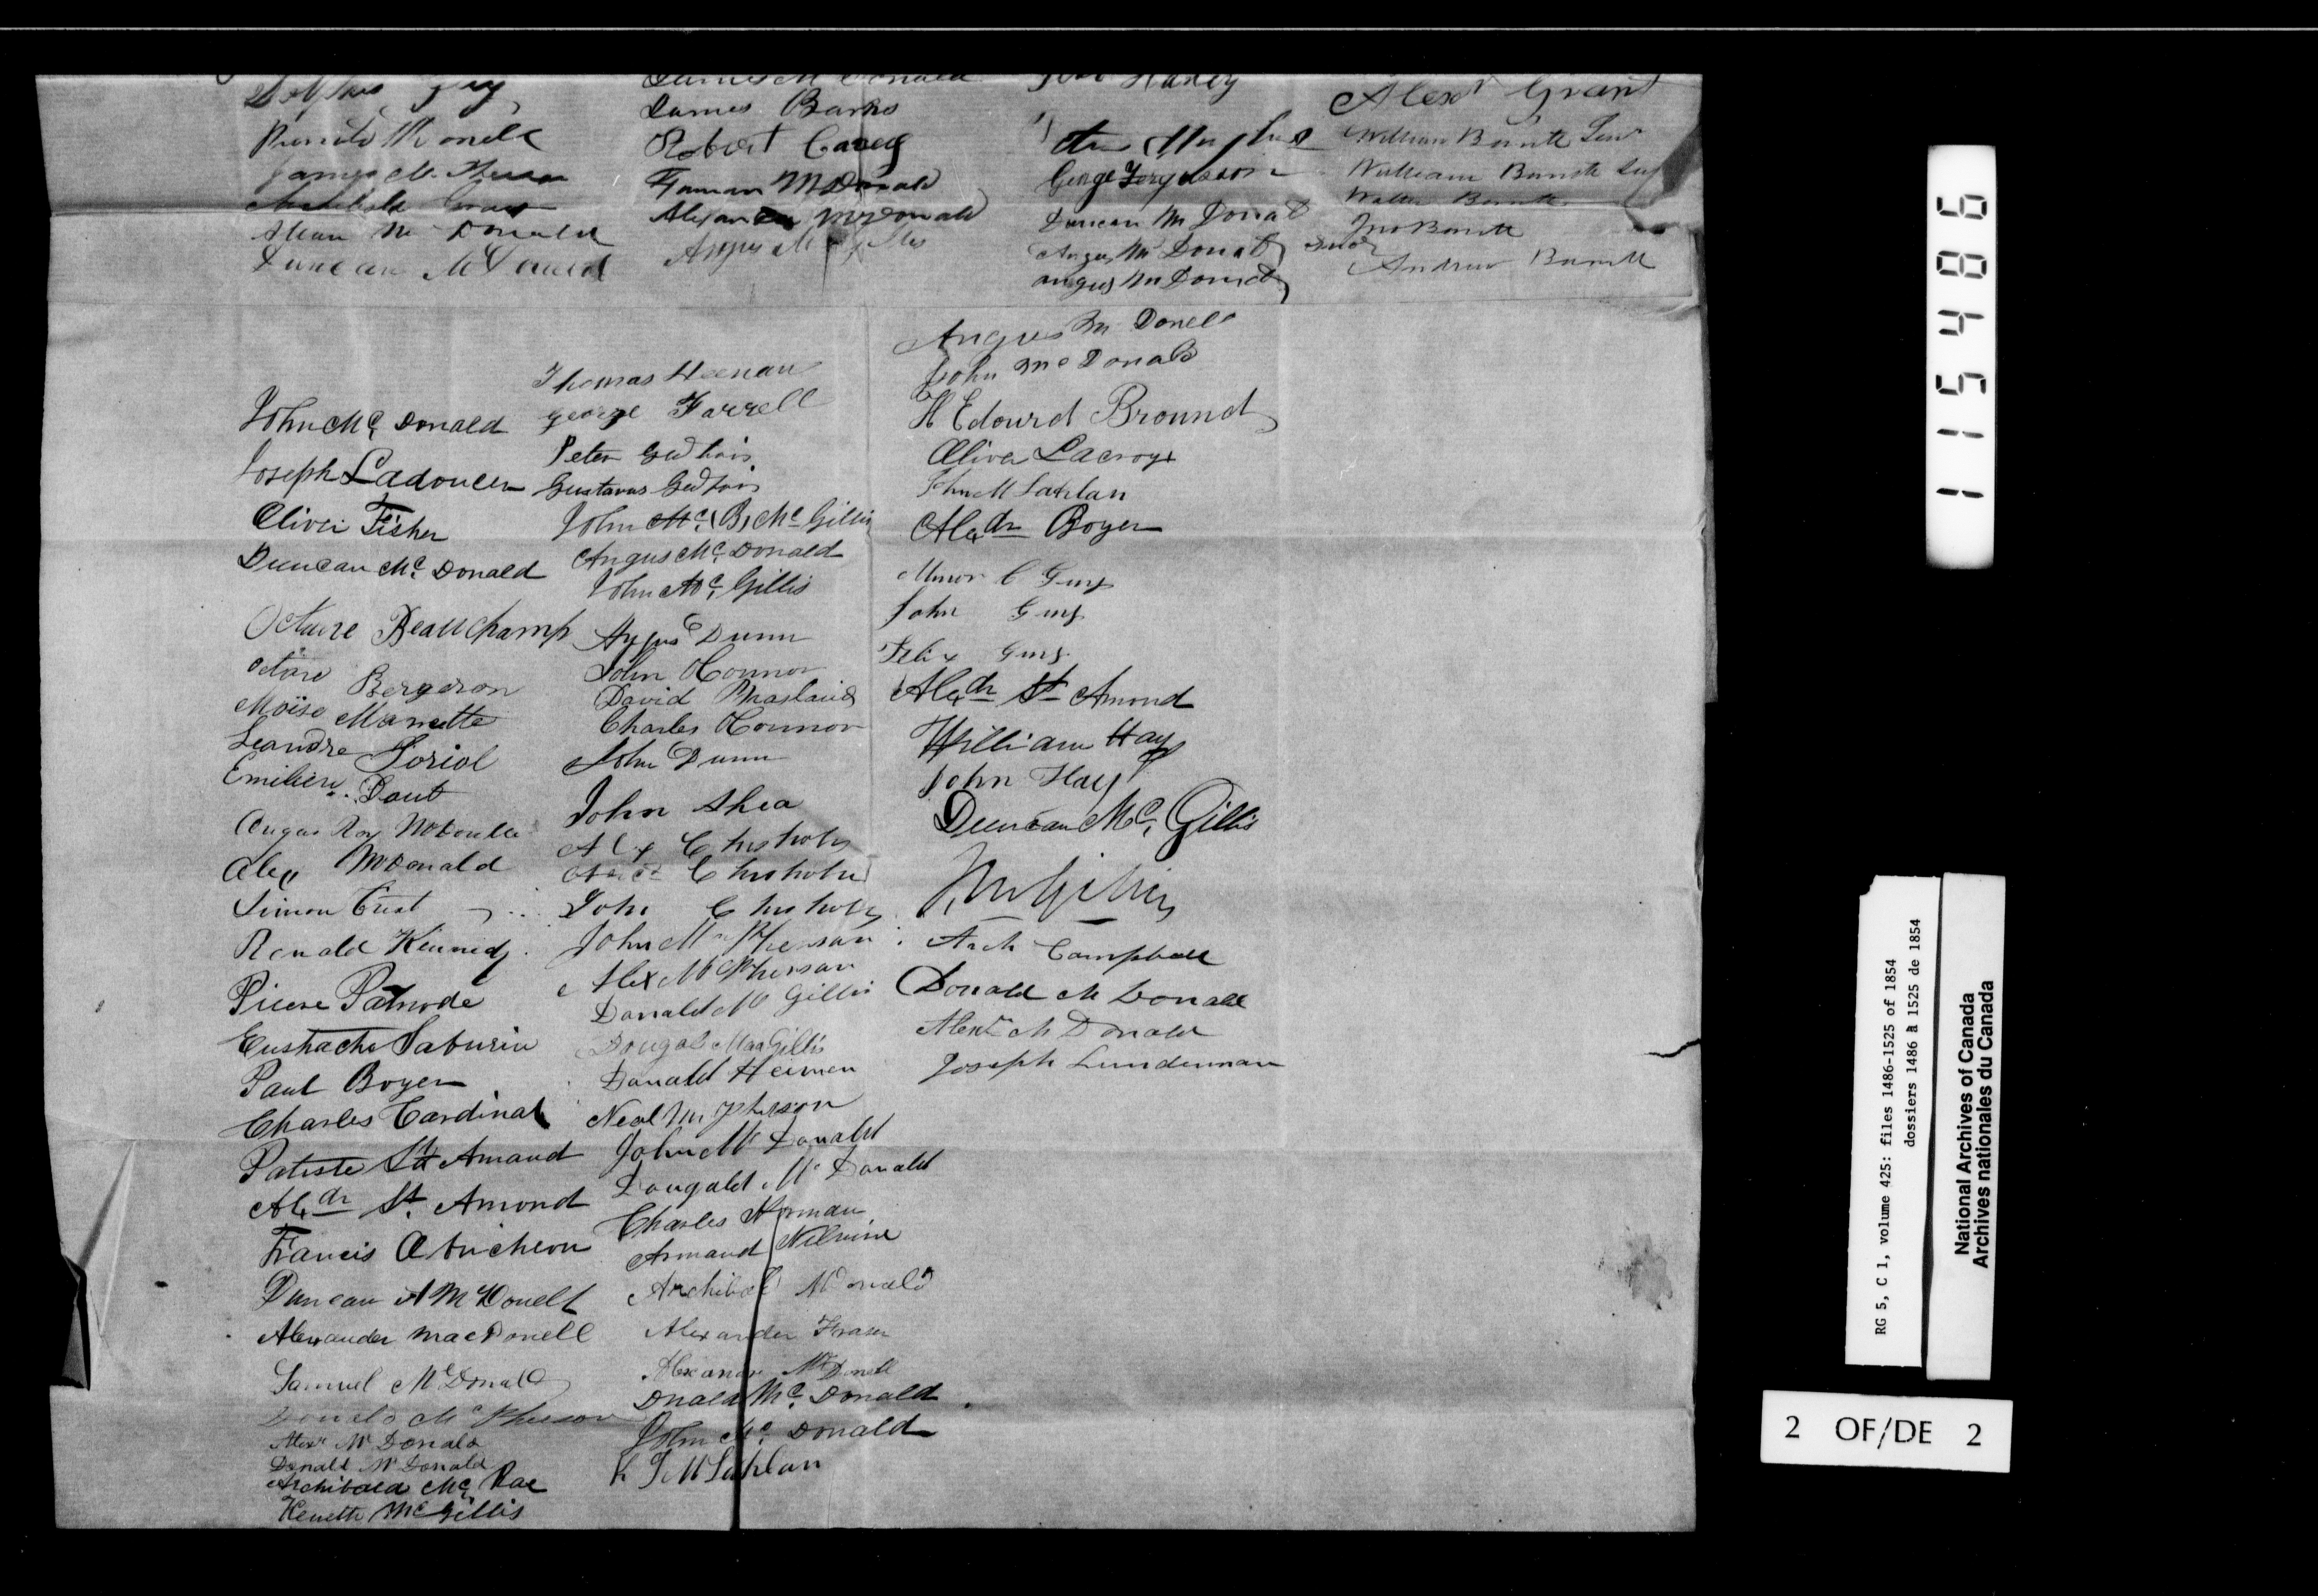 Guy
James McDonald
Harley
Alexr Grant
Ronald McDonell
James McPherson
Archibald Grant
Allan Mc Donald
Duncan McDonald
James Barns
Robert Carey
Farman McDonald
Alexander McDonald
Angus McGillis
Hughes
George Fergusson
Duncan Mc Donald
Angus Mc Donald
angus Mc Donald
William Burntt Senr
William Burntt
Walter Burntt
Jno Burntt
Andrew Burntt
John Mc Donald
Joseph Ladoucer
Olivei Fisher
Duncan Mc Donald
Octave Beauchamp
octave Bergeron
Moïse Marcette
Leandre Soriol
Emilien Daut
Angus Roy McDonell
Alex McDonald
Simon Crist
Ronald Kennedy
Piere Patnode
Eustache Saburin
Paul Boyer
Charles Cardinal
Patiste St Amand
Alexdr St. Amond
Francis
Duncan A McDonell
Alexander macDonell
Samuel McDonald
Donald Mc Pherson
Alexr Mc Donald
Donald Mc Donald
Archibald Mc Rae
Keneth McGillis
Thomas Heenan
george Farrell
Peter
Gustavus
John Mc (B) Mc Gillis
Angus Mc Donald
John Mc Gillis
Angus Dunn
John OConnor
David
Charles OConnor
John Dunn
John Shea
Alex Chisholm
Chisholm
John Chisholm
John McPherson
Alex McPherson
Donald Mc Gillis
Dougal MacGillis
Donald Heenen
Neal McPherson
John Mc Donald
Dougald Mc Donald
Charles Norman
Armand
Archibald McDonald
Alexander Fraser
Alexander McDonell
Dnald Mc Donald
John Mc Donald
K J McLahlan
Angus Mc Donell
John Mc Donald
H Edourd Bround
Oliver Lacroyx
John McLahlan
Alexdr Boyer
C Guy
John Guy
Felix Guy
Alexdr St Amond
William Hay
John Hay
Duncan Mc Gillis
Arch Campbell
Donald Mc Donald
Alexr Mc Donald
Joseph Lunderman
115486
RG 5, C 1, volume 425: files 1486-1525 of 1854
dossiers 1486 à 1525 de 1854
National Archives of Canada
Archives nationales du Canada
2 OF/DE 2